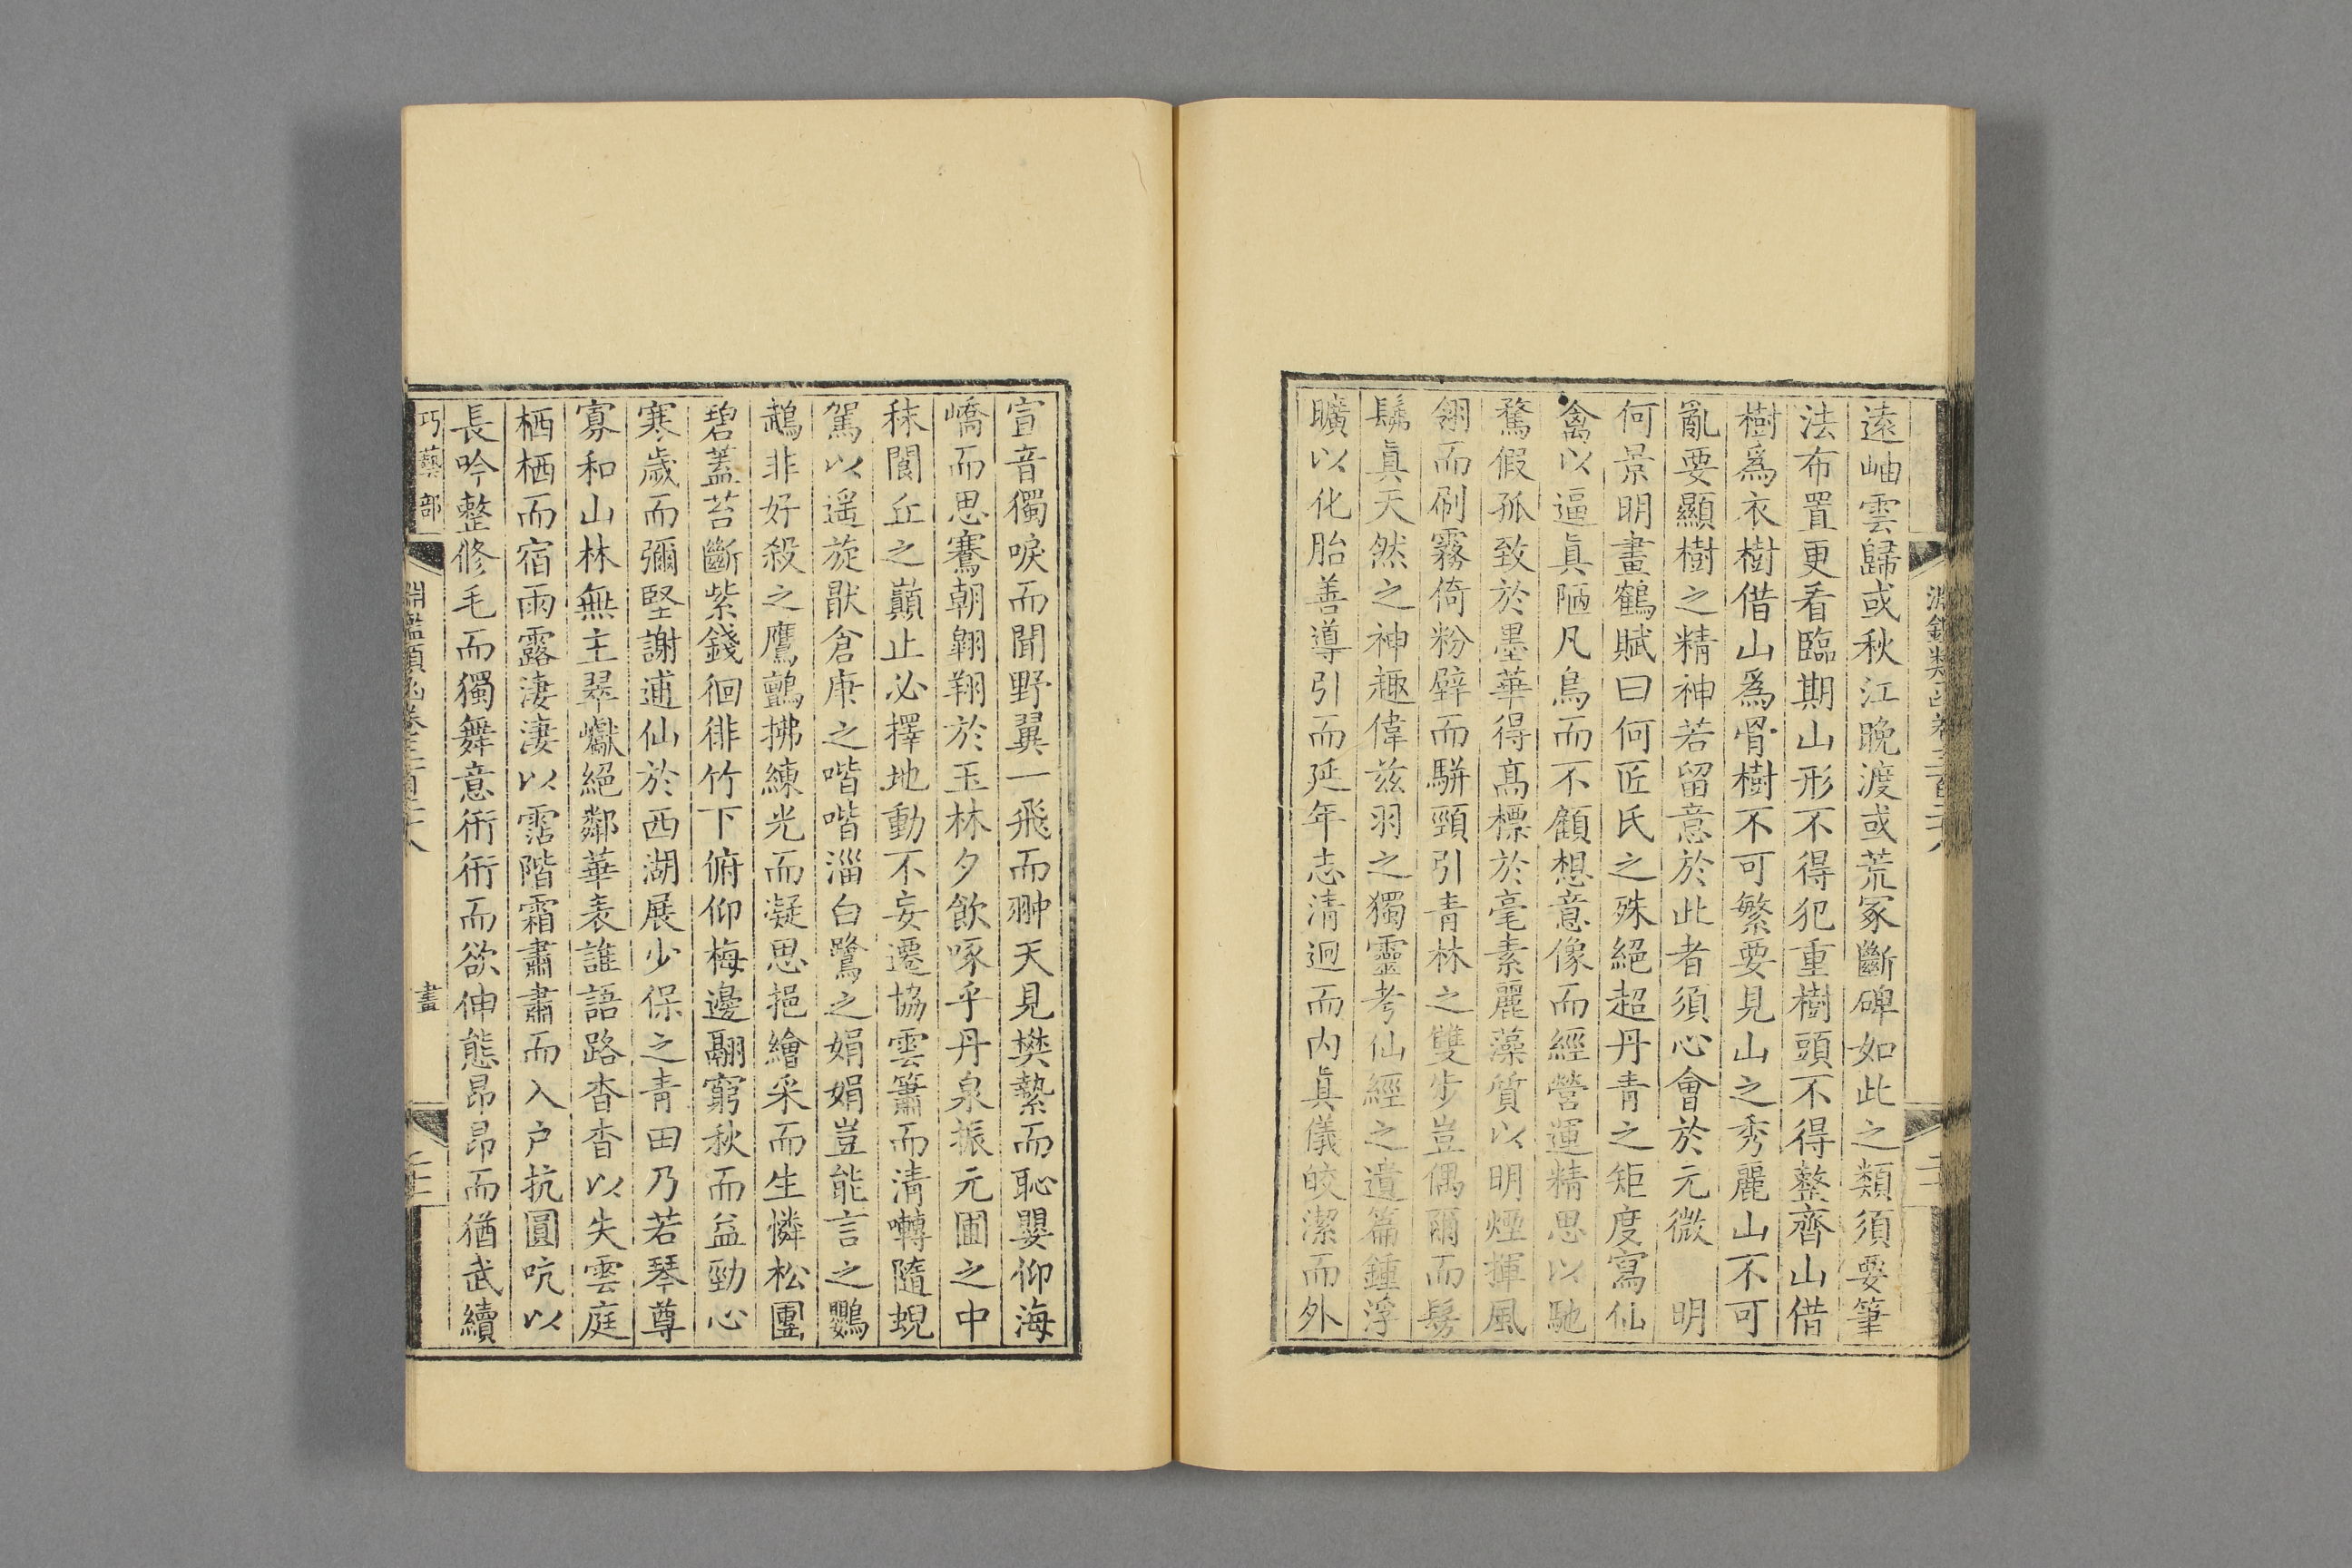 遠岫雲歸或秋江晚渡或荒冢斷碑如此之類須要筆
法布置更看臨期山形不得犯重樹頭不得整齊山借
樹爲衣樹借山爲骨樹不可繁要見山之秀麗山不可
亂要顯樹之精神若留意於此者須心會於元微　明
何景明畫鶴賦曰何匠氏之殊絕超丹青之矩度寫仙
禽以逼眞陋凡鳥而不顧想意像而經營運精思以馳
騖假孤致於墨華得高標於毫素麗藻質以明煙揮風
翎而刷霧倚粉壁而駢頸引青林之雙步豈偶爾而髣
髴眞天然之神趣偉茲羽之獨靈考仙經之遺篇鍾浮
曠以化胎善導引而延年志清迥而內眞儀皎潔而外
宣音獨唳而聞野翼一飛而翀天見樊縶而恥嬰仰海
嶠而思騫朝翱翔於玉林夕飲啄乎丹泉振元圃之中
秣閬丘之巔止必擇地動不妄遷協雲簫而清囀隨蜺
駕以遥旋猒倉庚之喈喈淄白鷺之娟娟豈能言之鸚
鵡非好殺之鷹鸇拂練光而凝思挹繪采而生憐松團
碧蓋苔斷紫錢徊徘竹下俯仰梅邊翮窮秋而益勁心
寒歲而彌堅謝逋仙於西湖展少保之青田乃若琴尊
寡和山林無主翠巘絕鄰華表誰語路杳杳以失雲庭
栖栖而宿雨露淒淒以霑階霜肅肅而入戶抗圓吭以
長吟整修毛而獨舞意衎衎而欲伸態昂昂而猶武續
巧藝部
畫